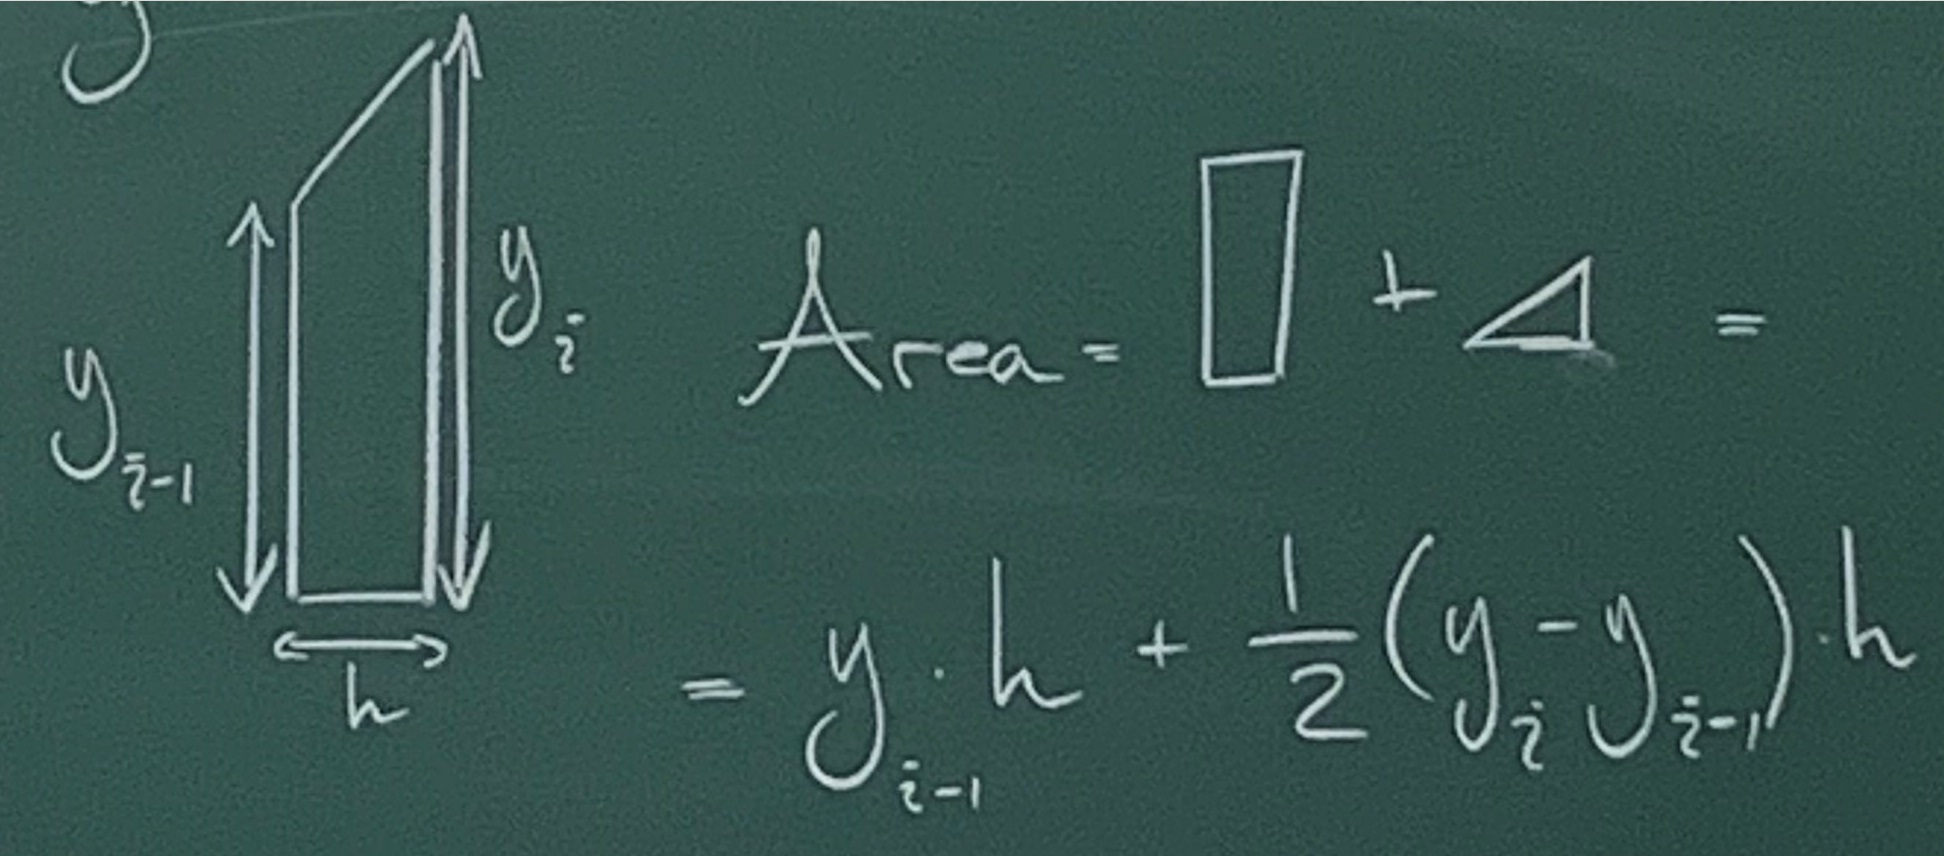 y_i
y_{i-1}
h
Area = ▯ + ◿ =
= y_{i-1} · h + \frac{1}{2} (y_i - y_{i-1}) · h